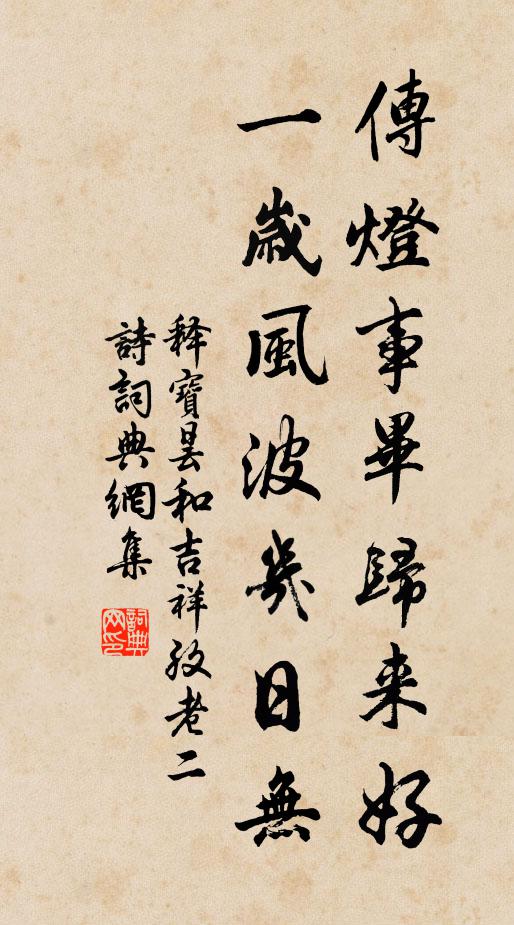 傳燈事畢歸来好
一歲風波幾日無
释寶曇和吉祥孜老二
詩詞典網集
詞典網印